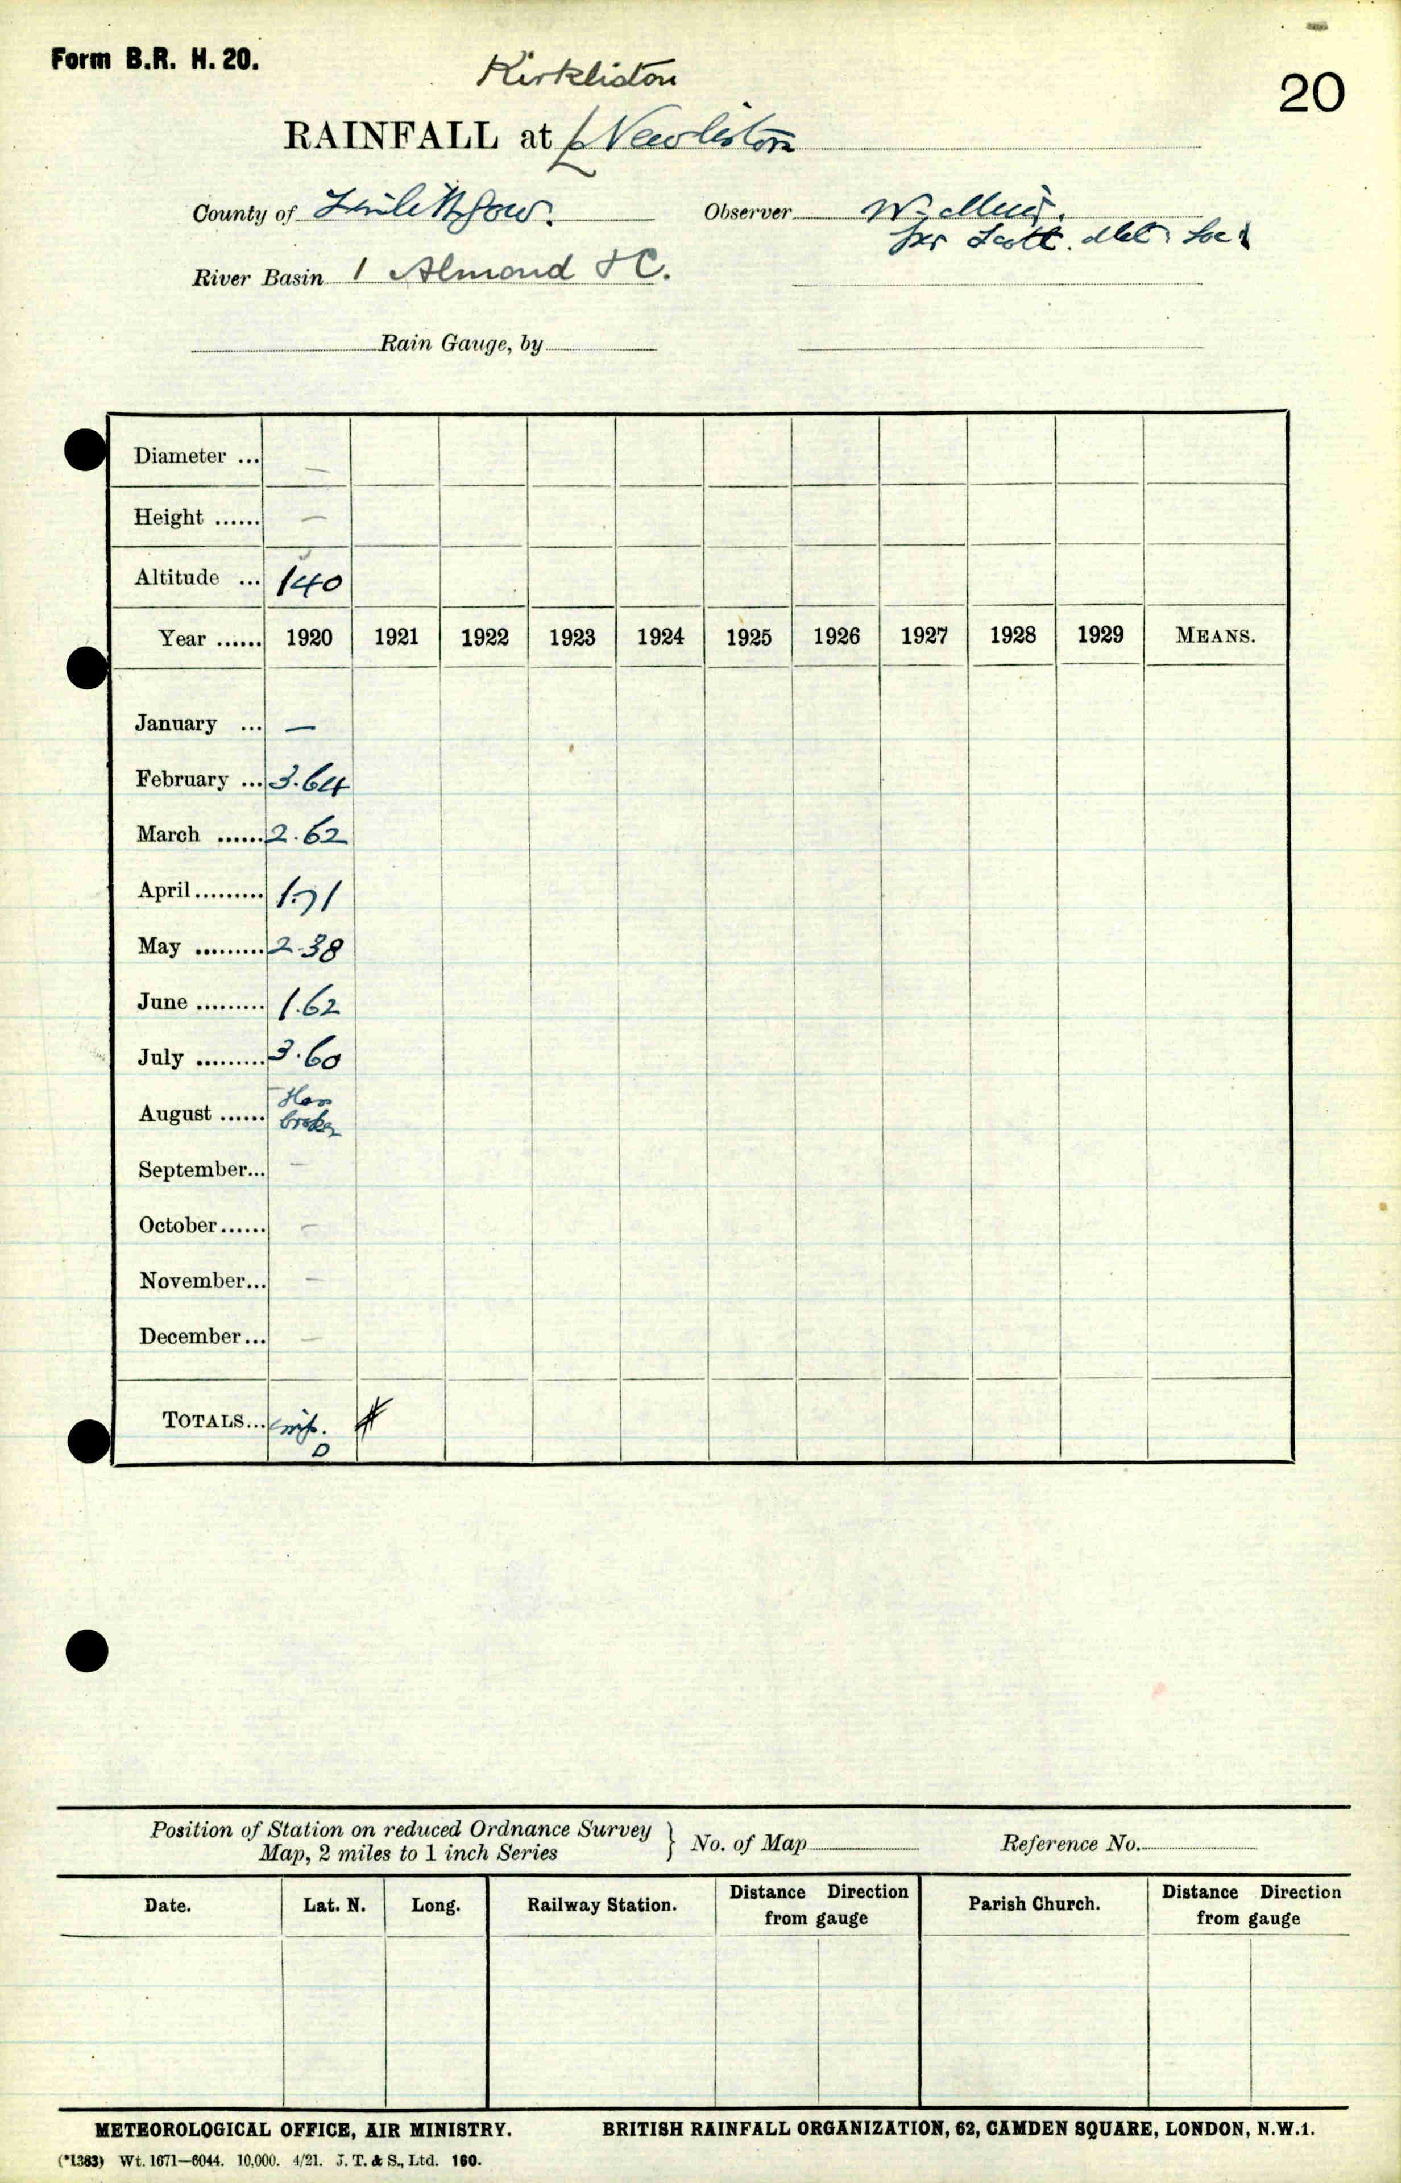 Form B.R. H. 20.
20
Kirkliston
RAINFALL at Newliston
County of Linlithgow. Observer W. Muir.
per Scott. Met. Soc.
River Basin 1 Almond & C.
Rain Gauge, by
Diameter ... —
Height ...... —
Altitude ... 140
Year ...... 1920 1921 1922 1923 1924 1925 1926 1927 1928 1929 MEANS.
January ... —
February ... 3.64
March ...... 2.62
April ......... 1.71
May ......... 2.38
June ......... 1.62
July ......... 3.60
August ...... broken
September... —
October...... —
November... —
December... —
TOTALS...
Position of Station on reduced Ordnance Survey } No. of Map Reference No.
Map, 2 miles to 1 inch Series
Date. Lat. N. Long. Railway Station. Distance Direction Parish Church. Distance Direction
from gauge from gauge
METEOROLOGICAL OFFICE, AIR MINISTRY. BRITISH RAINFALL ORGANIZATION, 62, CAMDEN SQUARE, LONDON, N.W.1.
(*1383) Wt. 1671—6044. 10,000. 4/21. J. T. & S., Ltd. 160.